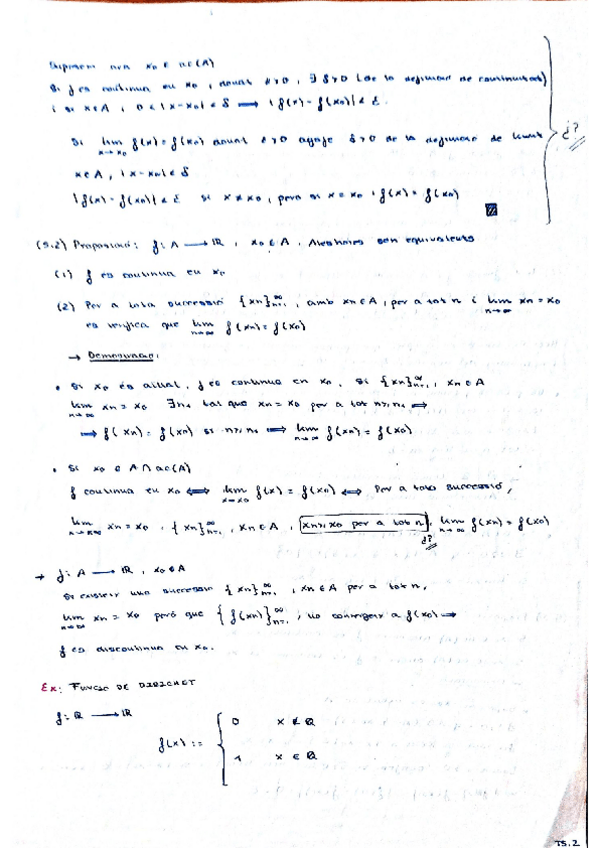 Suposem ara x₀ ∈ ac(A)
Si f és contínua en x₀, donat ε>0, ∃ δ>0 (de la definició de continuïtat)
i si x∈A, 0<|x-x₀|<δ ⟹ |f(x)-f(x₀)|<ε.
Si lim x→x₀ f(x)=f(x₀) donat ε>0 agafe δ>0 de la definició de límit
x∈A, |x-x₀|<δ
|f(x)-f(x₀)|<ε si x≠x₀, però si x=x₀, f(x)=f(x₀)
¿?
(5.2) Proposició: f: A ⟶ ℝ, x₀∈A. Aleshores són equivalents
(1) f és contínua en x₀
(2) Per a tota successió {xn}∞n=1, amb xn∈A, per a tot n i lim n→∞ xn=x₀
es verifica que lim n→∞ f(xn)=f(x₀)
→ Demostració:
• Si x₀ és aïllat, f és contínua en x₀. Si {xn}∞n=1, xn∈A
lim n→∞ xn=x₀ ∃n₁ tal que xn=x₀ per a tot n≥n₁ ⟹
⟹ f(xn)=f(x₀) si n≥n₁ ⟹ lim n→∞ f(xn)=f(x₀)
• Si x₀∈A∩ac(A)
f contínua en x₀ ⟺ lim x→x₀ f(x)=f(x₀) ⟺ Per a tota successió,
lim n→∞ xn=x₀, {xn}∞n=1, xn∈A, xn≠x₀ per a tot n, lim n→∞ f(xn)=f(x₀)
¿?
→ f: A ⟶ ℝ, x₀∈A
Si existeix una successió {xn}∞n=1, xn∈A per a tot n,
lim n→∞ xn=x₀ però que {f(xn)}∞n=1, no convergeix a f(x₀) ⟹
f és discontínua en x₀.
Ex: FUNCIÓ DE DIRICHLET
f: ℝ ⟶ ℝ
f(x):= { 0 x∉ℚ
1 x∈ℚ
T5.2